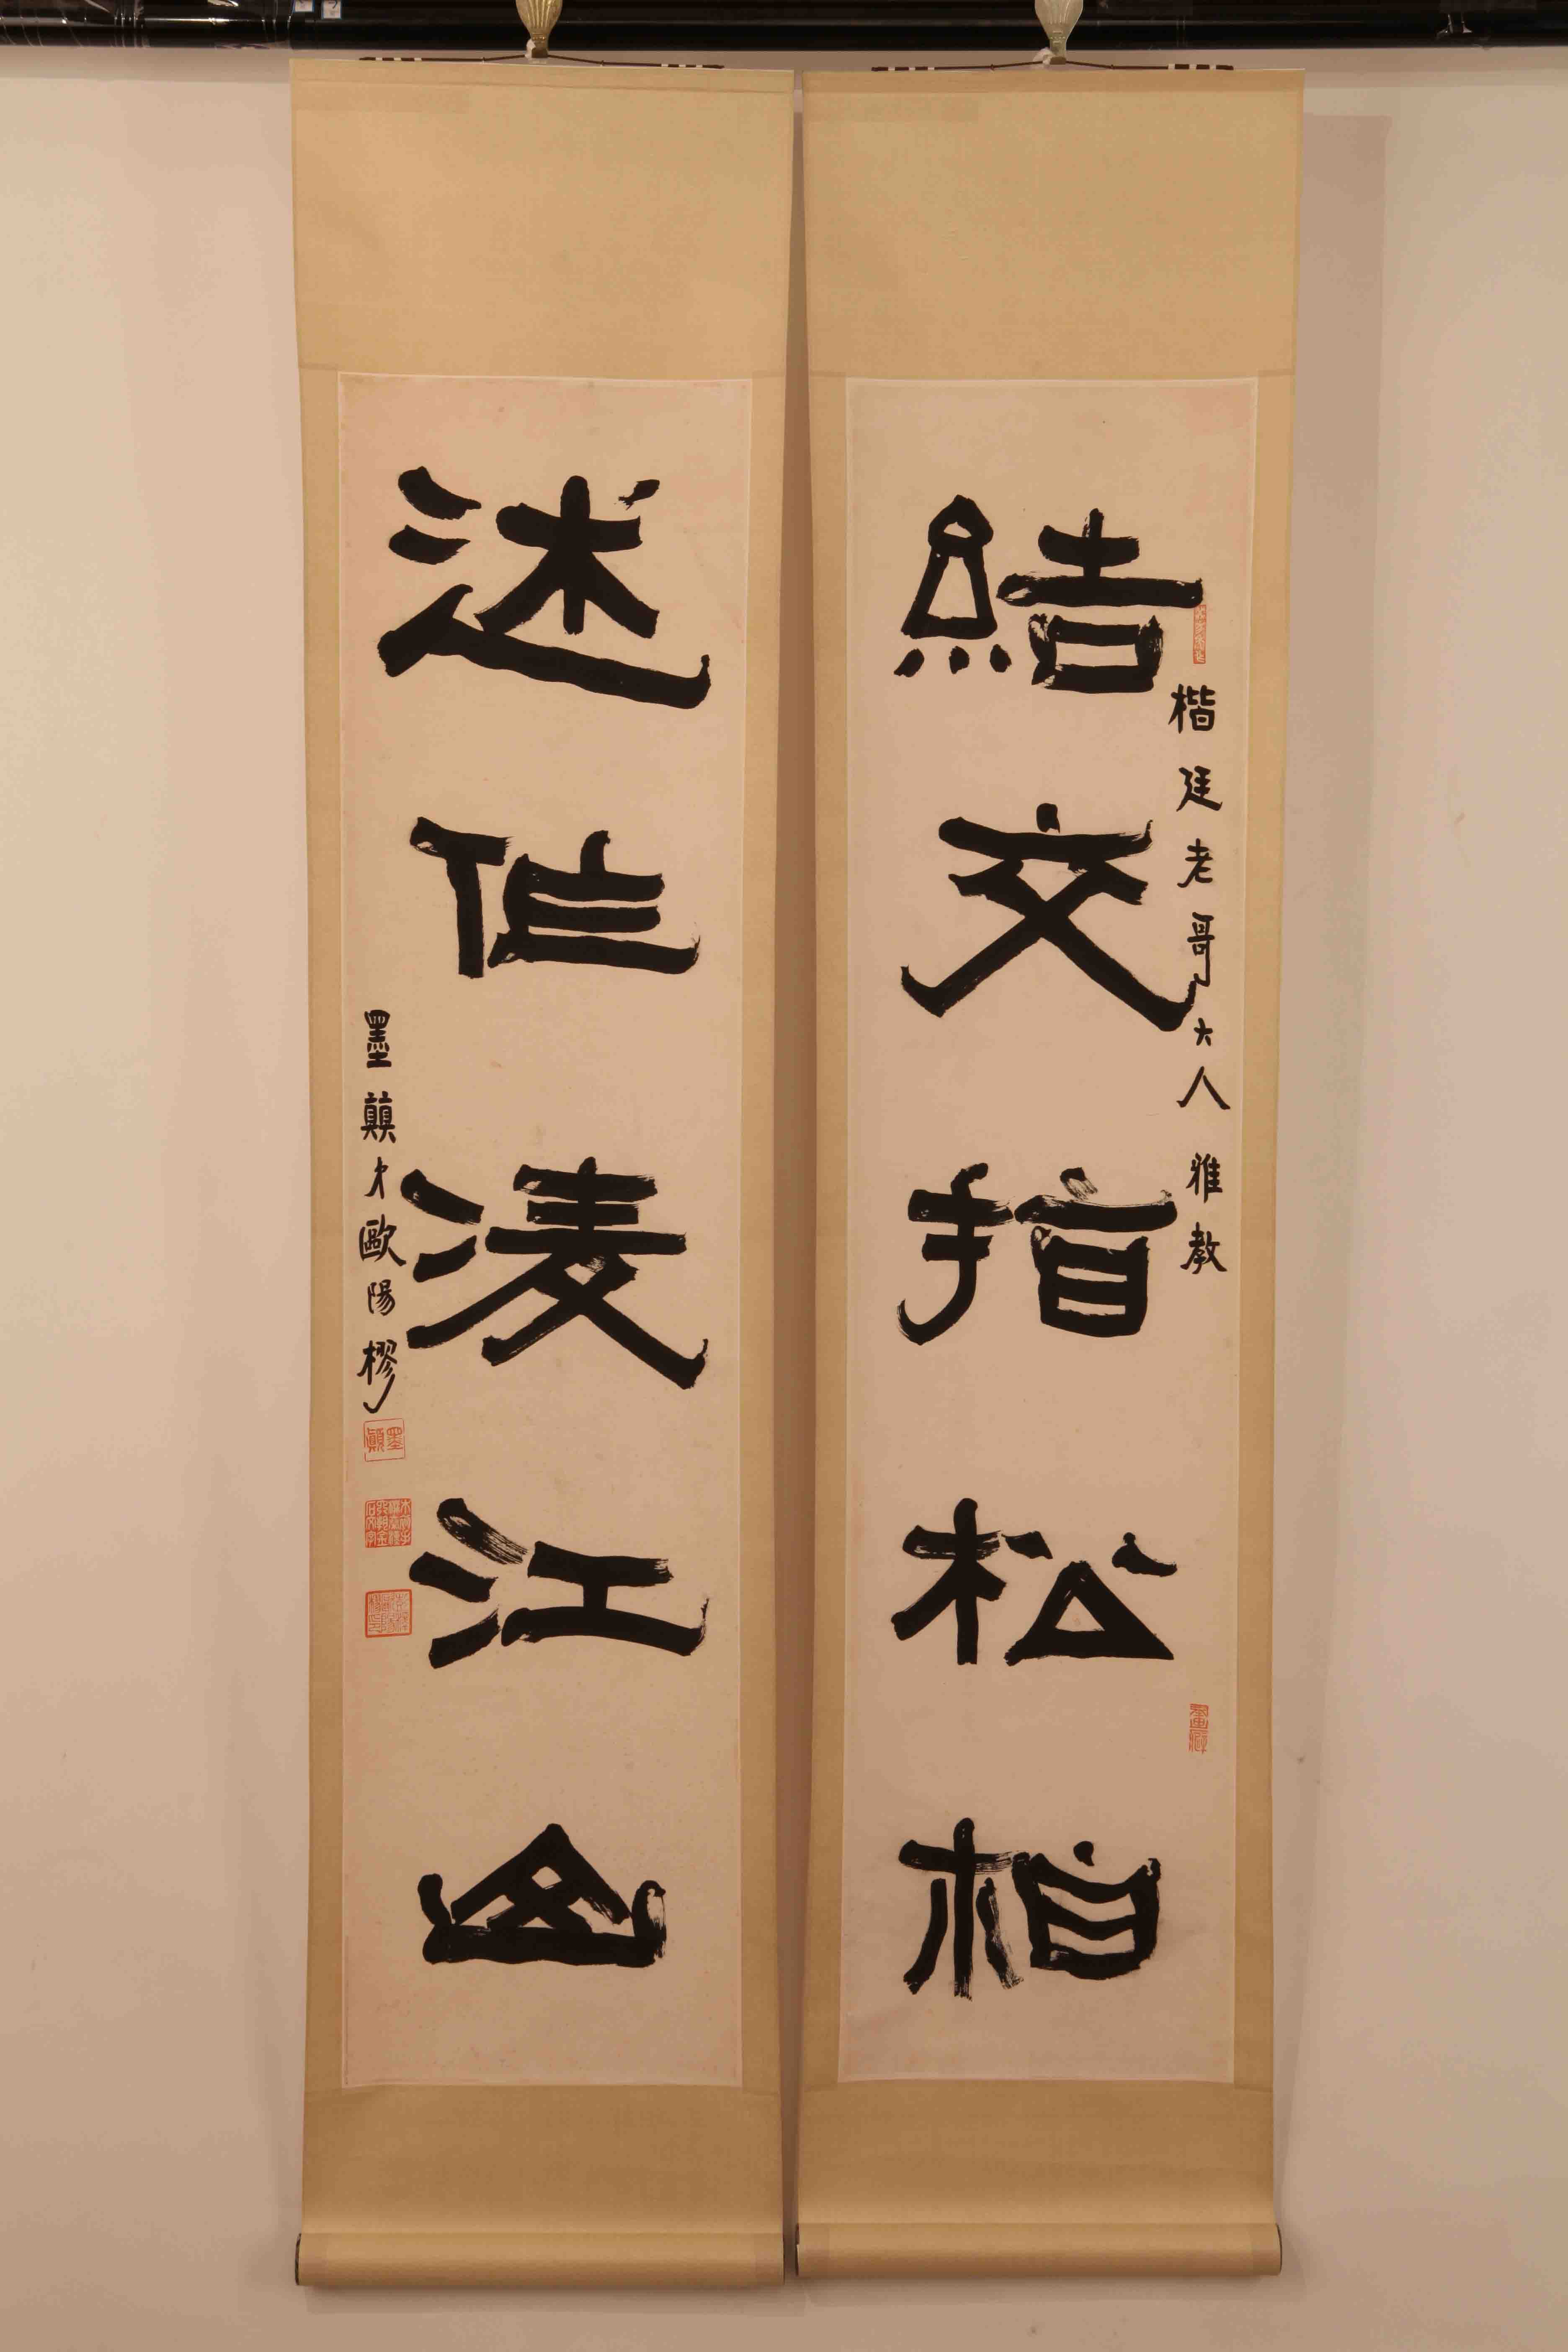 結交指松柏
楷廷老哥大人雅教
述作淩江山
墨顛弟歐陽樛
墨顛